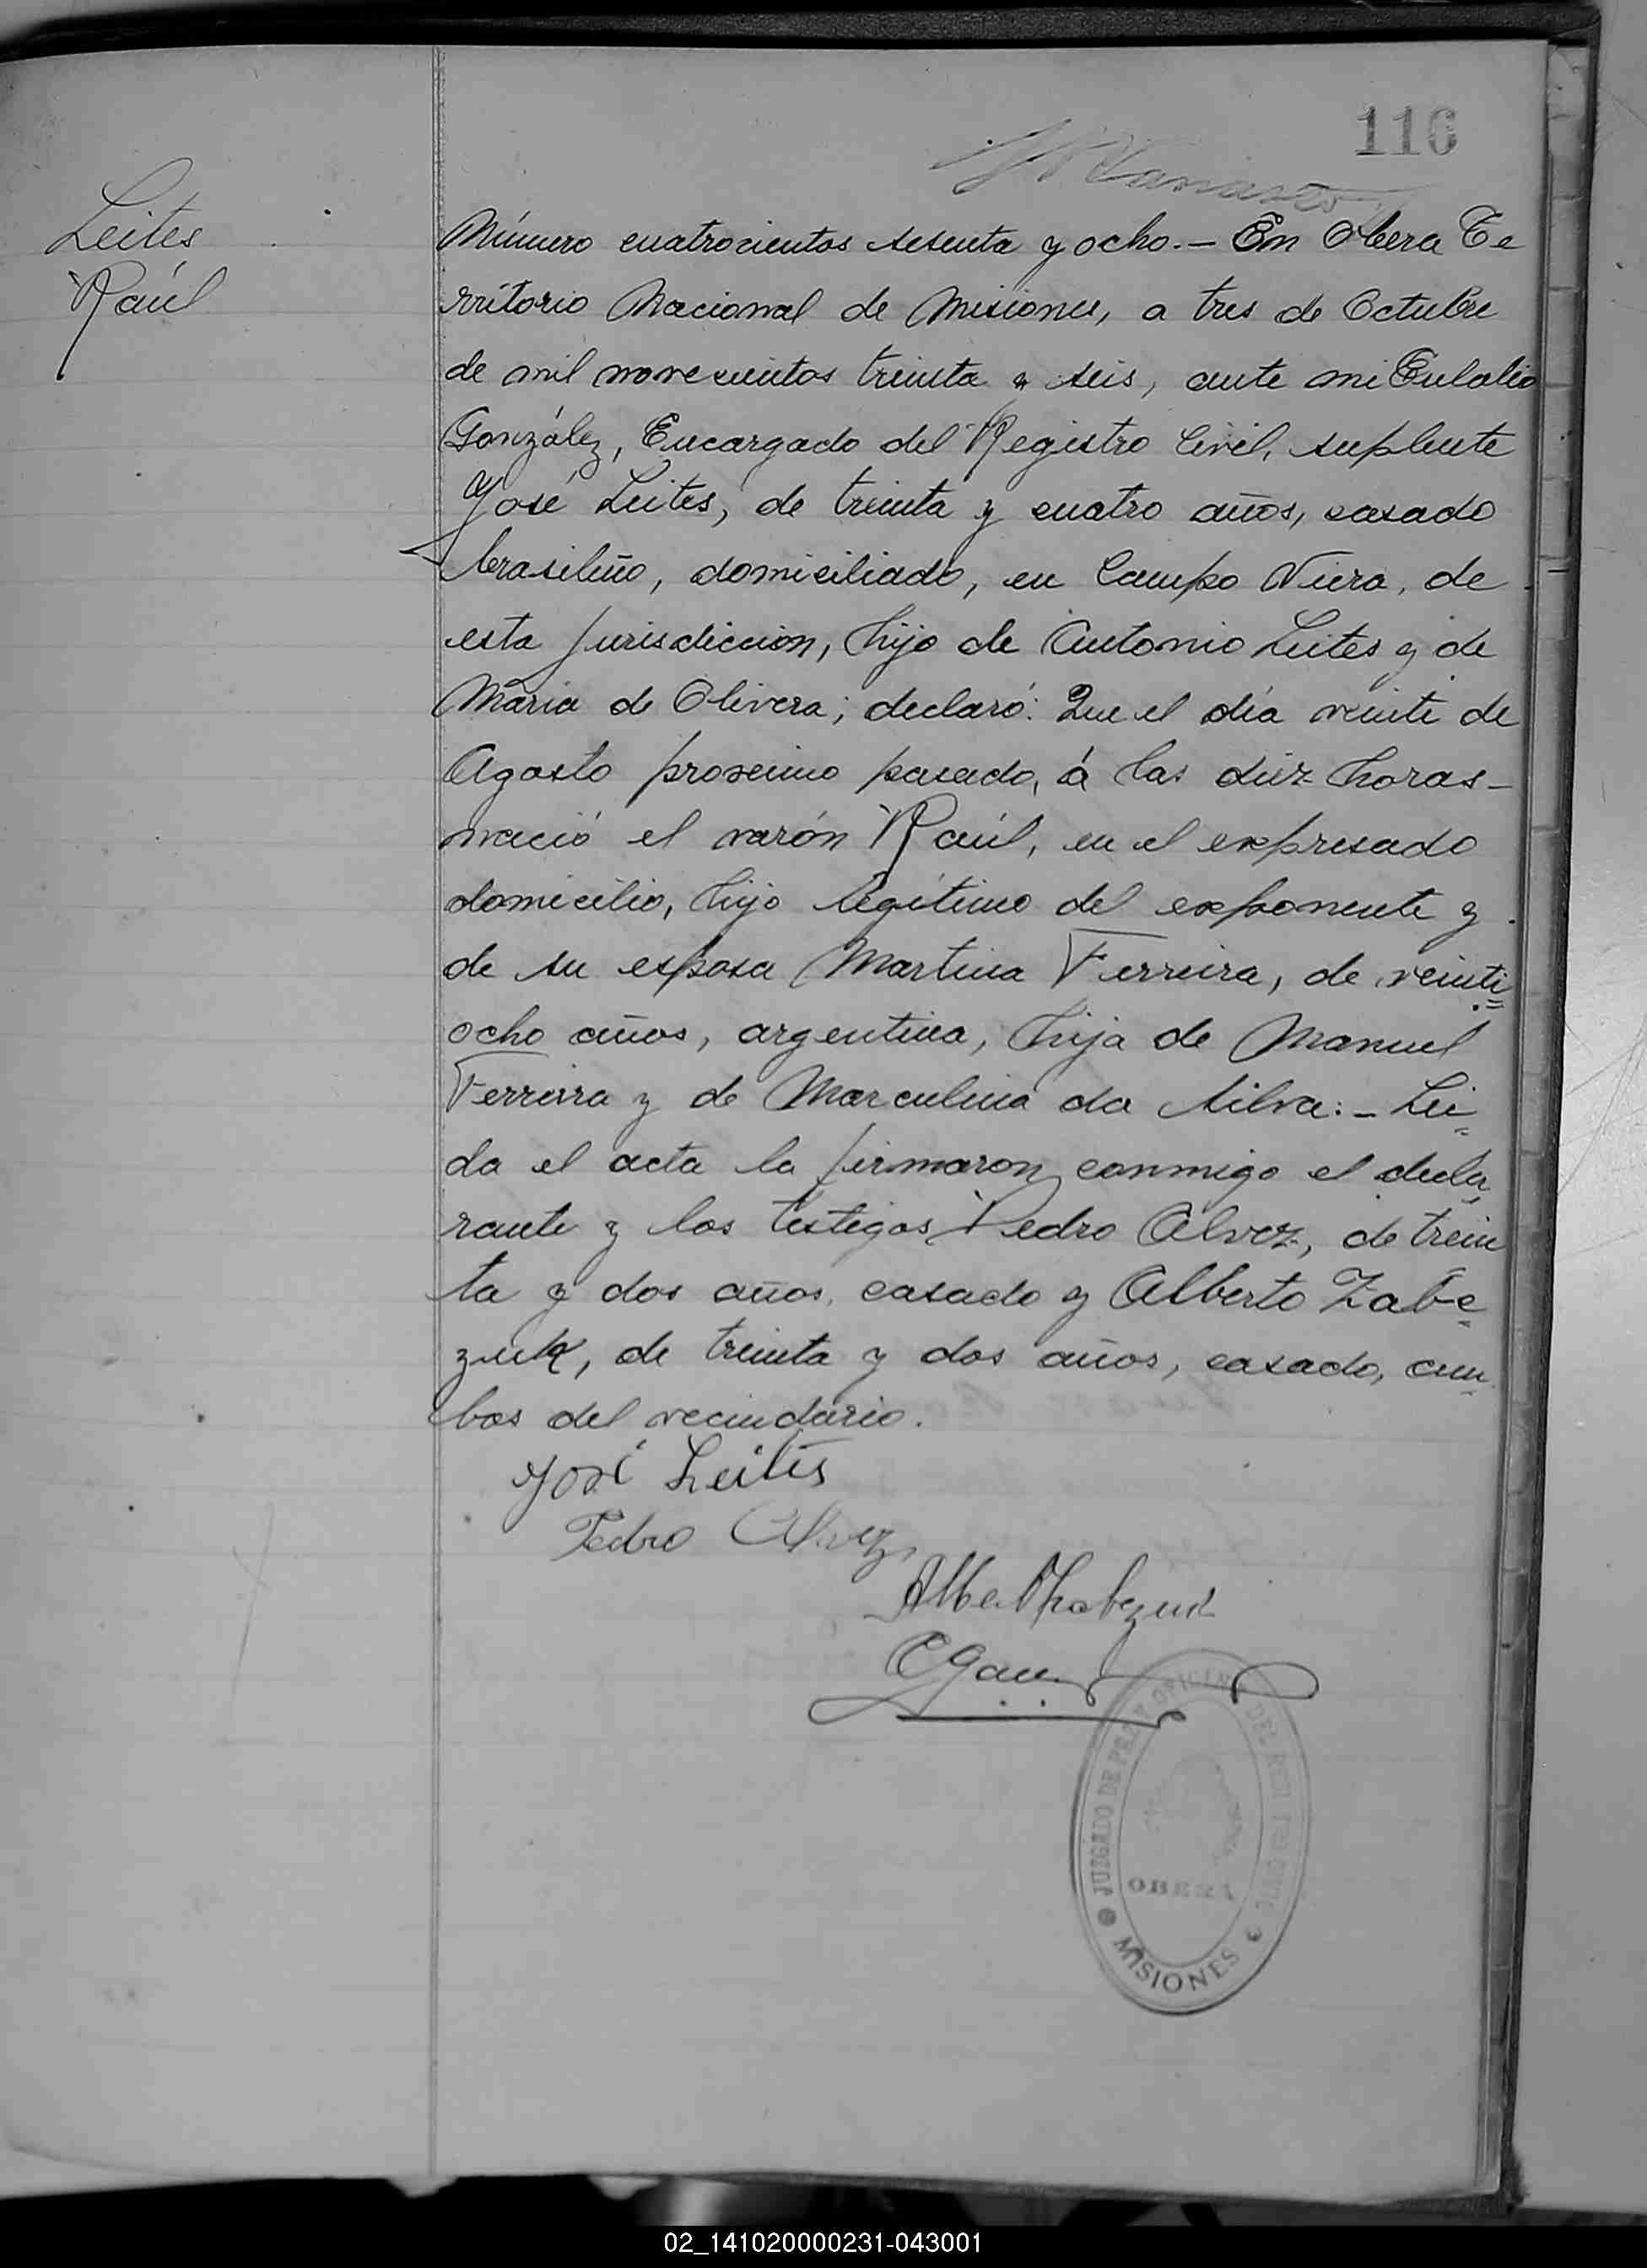 116
Leites
Raúl
Número cuatrocientos sesenta y ocho.- En Obera Te
rritorio Nacional de Misiones, a tres de Octubre
de mil novecientos treinta y seis, ante mi Eulalio
González, Encargado del Registro Civil, suplente
José Leites, de treinta y cuatro años, casado
brasileño, domiciliado, en Campo Viera, de
esta jurisdiccion, hijo de Antonio Leites y de
Maria de Olivera; declaró: Que el día veinte de
Agosto proximo pasado, á las diez horas-
nació el varón Raúl, en el expresado
domicilio, hijo legítimo del exponente y
de su esposa Martina Ferreira, de veinti=
ocho años, argentina, hija de Manuel
Ferreira y de Marculina da Silva:- Lei=
da el acta la firmaron conmigo el decla
rante y los testigos Pedro Alvez, de trein
ta y dos años, casado y Alberto Zabe
zuk, de treinta y dos años, casado, am
bos del vecindario.
José Leites
Pedro Alvez
JUZGADO DE PAZ Y OFICINA DEL REGISTRO CIVIL
OBERA
MISIONES
02_141020000231-043001